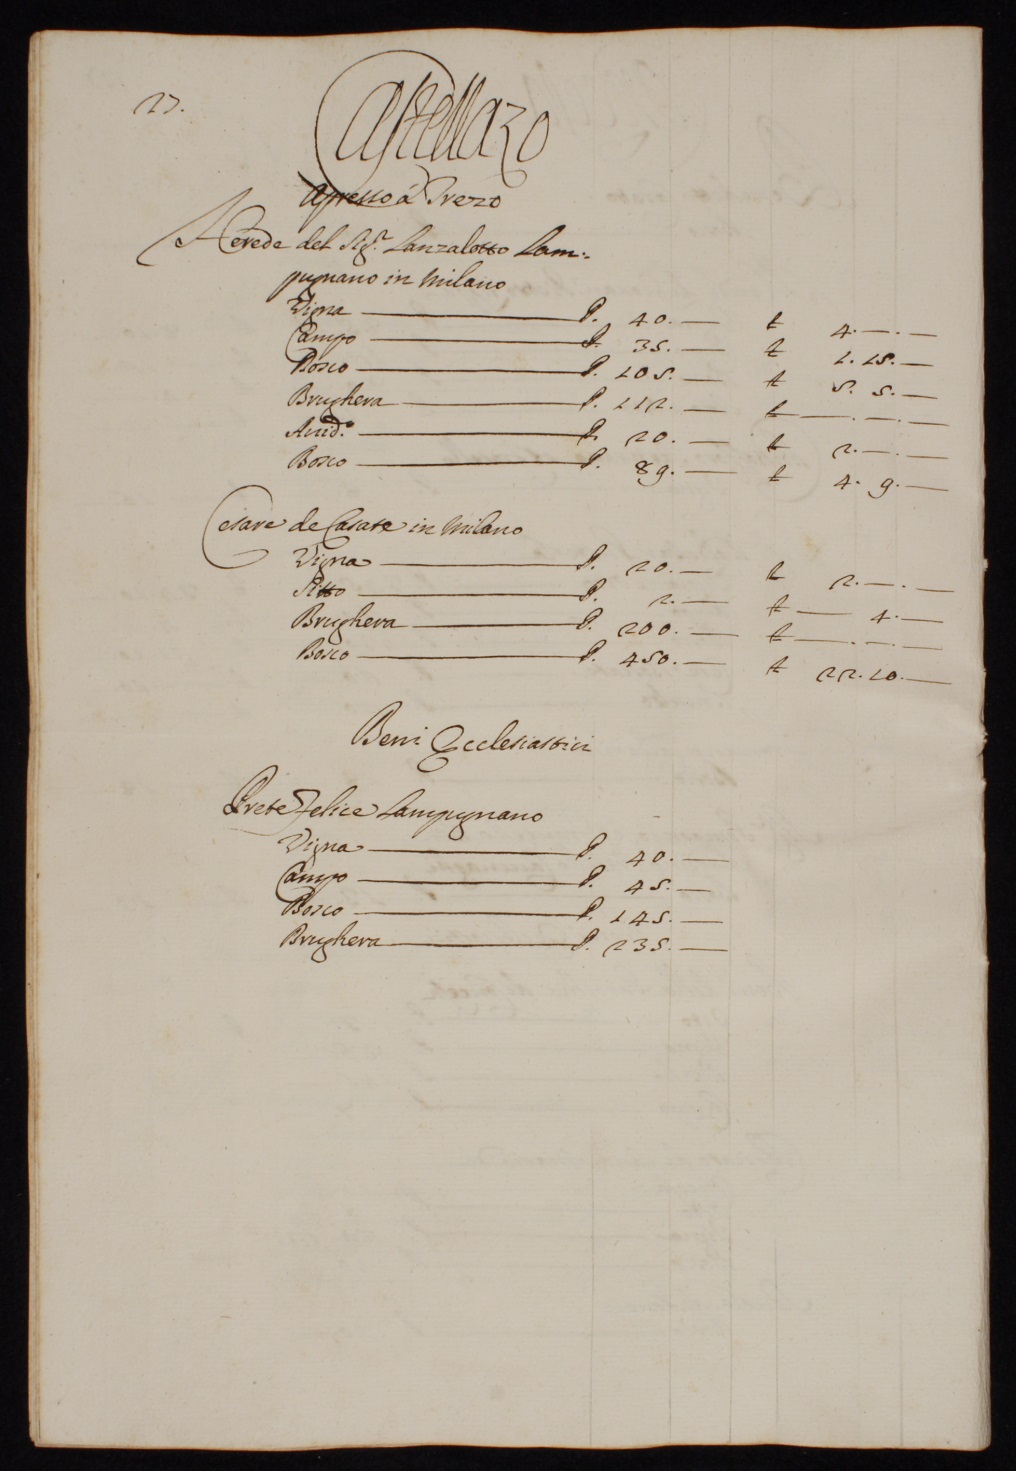 27.
Castellazo
Apresso á Trezo
Herede del Sig.r Lanzalotto Lam:
pugnano in Milano
Vigna — P. 40. — £ 4. — . —
Campo — P. 35. — £ 1. 15. —
Bosco — P. 105. — £ 5. 5. —
Brughera — P. 112. — £ — . — . —
Avid.o — P. 20. — £ 2. — . —
Bosco — P. 89. — £ 4. 9. —
Cesare de Casate in Milano
Vigna — P. 20. — £ 2. — . —
Sitto — P. 2. — £ — 4. —
Brughera — P. 200. — £ — . — . —
Bosco — P. 450. — £ 22. 10. —
Beni Ecclesiastici
Prete Felice Lampugnano
Vigna — P. 40. —
Campo — P. 45. —
Bosco — P. 145. —
Brughera — P. 235. —